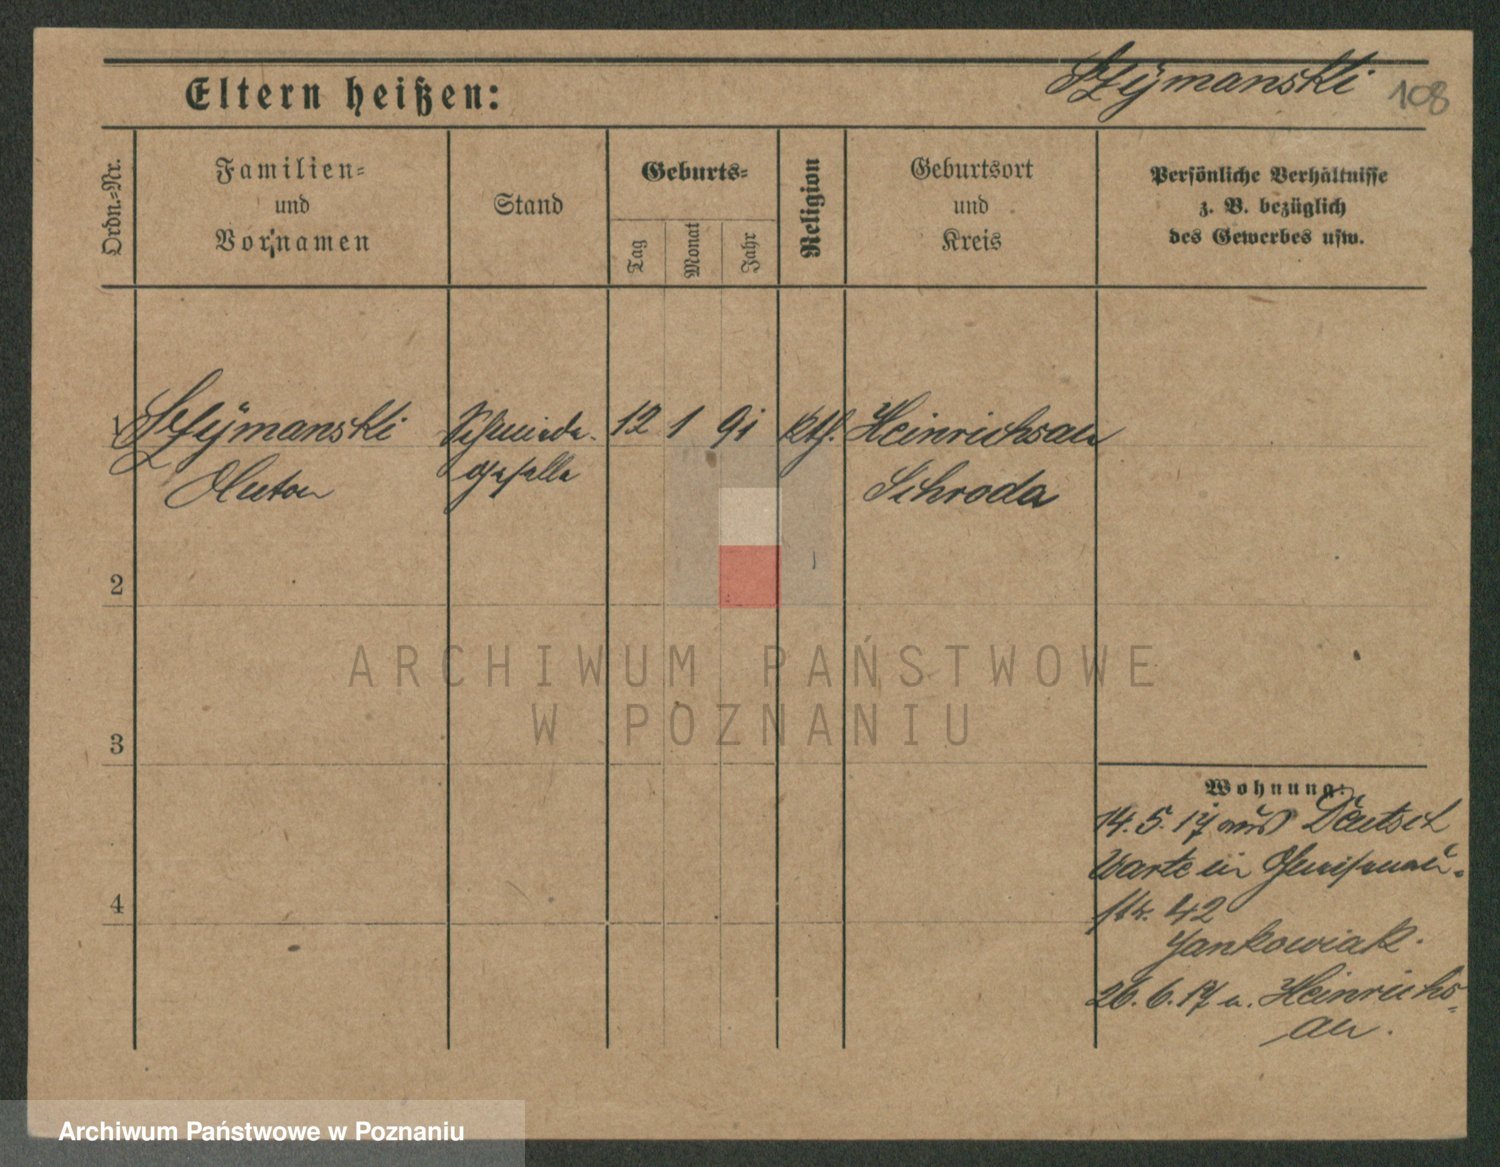 Eltern heißen:
Szÿmanski 108
Ordn.=Nr.
Familien=
und
Vornamen
Stand
Geburts=
Tag
Monat
Jahr
Religion
Geburtsort
und
Kreis
Persönliche Verhältnisse
z. B. bezüglich
des Gewerbes usw.
1 Szÿmanski Schmiede- 12 1 91 kth. Heinrichsau
Anton geselle Schroda
2
3
4
Wohnung:
14. 5. 17 aus Deutsch
Warte in Gneisenau-
str. 42
Jankowiak.
26. 6. 17 n. Heinrichs-
au.
ARCHIWUM PAŃSTWOWE
W POZNANIU
Archiwum Państwowe w Poznaniu